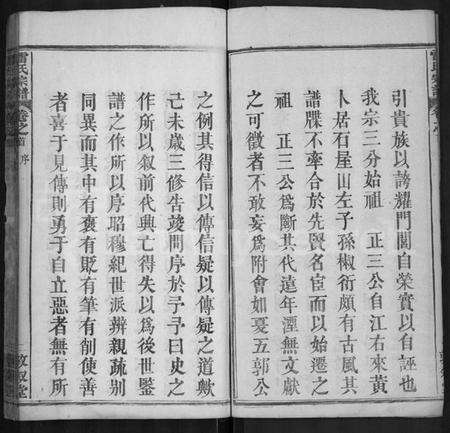 引貴族以誇耀門閭自榮實以自誣也
我宗三分始祖 正三公自江右來黃
卜居石屋山左子孫椒衍頗有古風其
譜牒不牽合於先賢名宦而以始遷之
祖 正三公爲斷其代遠年湮無文獻
之可徵者不敢妄爲附會如夏五郭公
之例其得信以傳信疑以傳疑之道歟
己未歲三修告竣問序於予予曰史之
作所以叙前代興亡得失以爲後世鑒
譜之作所以序昭穆紀世派辨親疏别
同異而其中有褒有貶有筆有削使善
者喜于見傳則勇于自立惡者無有所
雷氏宗譜 卷之首 序
敦叙堂